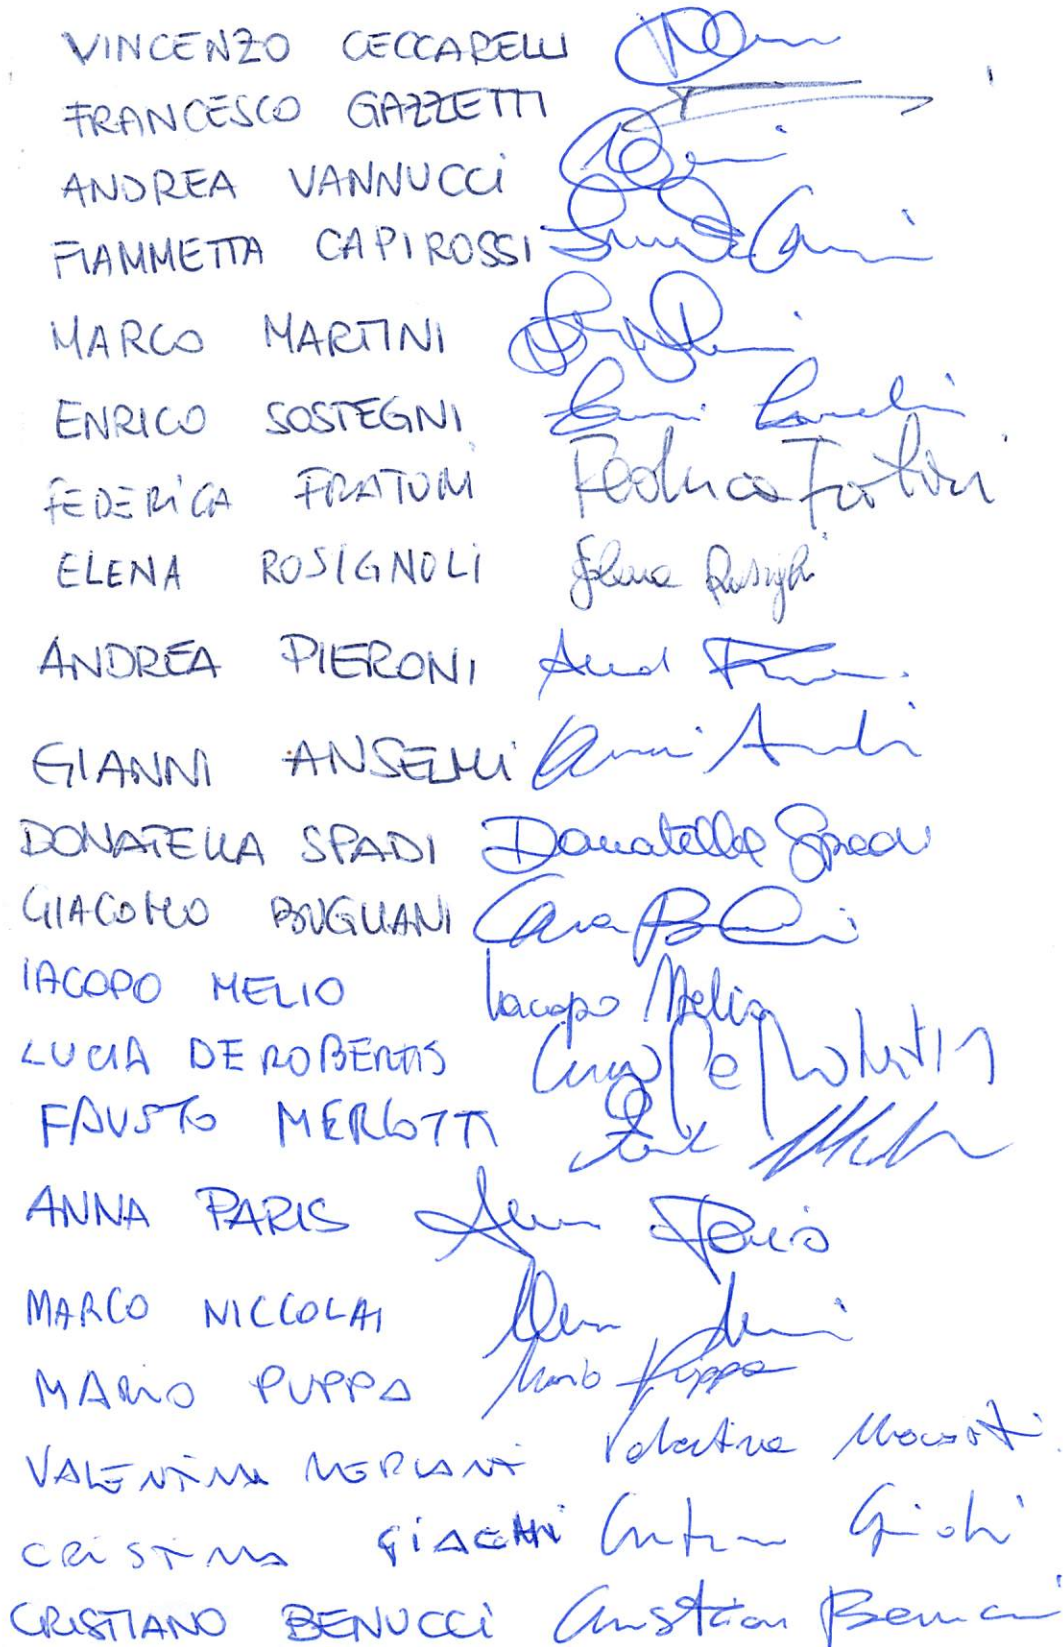 VINCENZO CECCARELLI
FRANCESCO GAZZETTI
ANDREA VANNUCCI
FIAMMETTA CAPIROSSI
MARCO MARTINI
ENRICO SOSTEGNI
FEDERICA FRATONI Federica Fratoni
ELENA ROSIGNOLI Elena Rosignoli
ANDREA PIERONI
GIANNI ANSELMI
DONATELLA SPADI Donatella Spadi
GIACOMO BUGLIANI
IACOPO MELIO Iacopo Melio
LUCIA DE ROBERTIS Lucia De Robertis
FAUSTO MERLOTTI
ANNA PARIS Anna Paris
MARCO NICCOLAI
MARIO PUPPA Mario Puppa
VALENTINA Valentina
CRISTINA GIACHI
CRISTIANO BENUCCI Cristiano Benucci